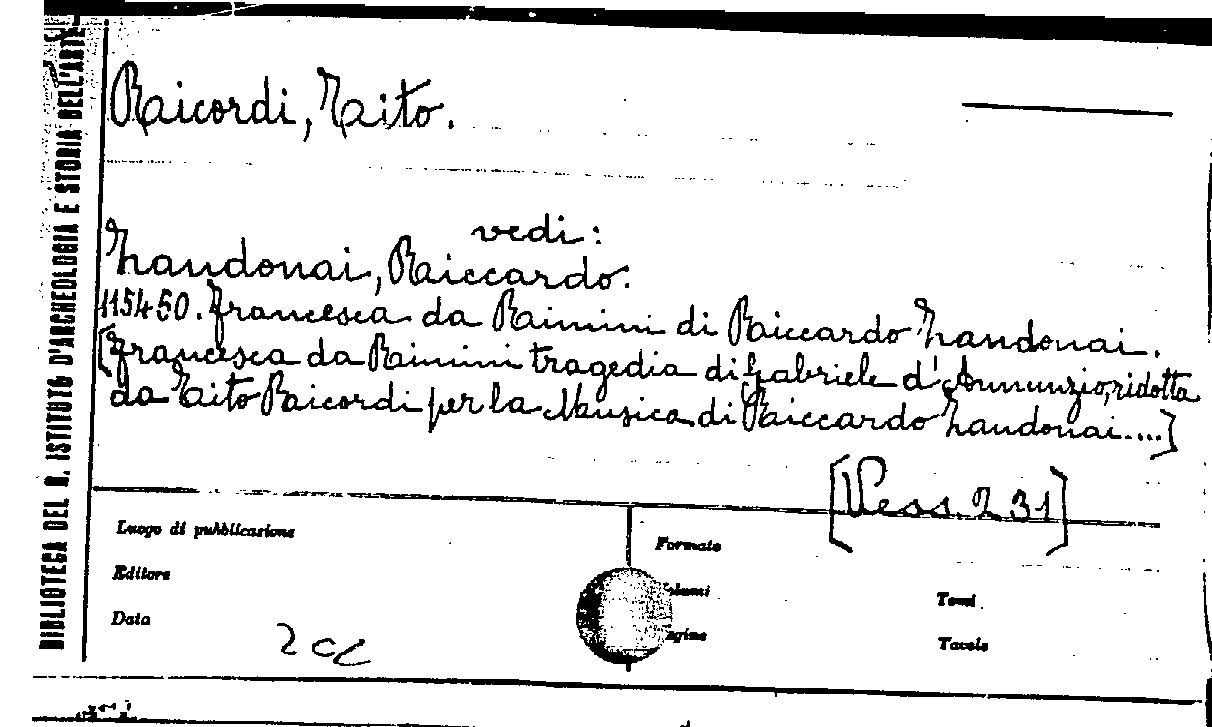 BIBLIOTECA DEL R. ISTITUTO D'ARCHEOLOGIA E STORIA DELL'ARTE
Ricordi, Tito.
vedi:
Zandonai, Riccardo.
115450. Francesca da Rimini di Riccardo Zandonai.
[Francesca da Rimini tragedia di Gabriele d'Annunzio, ridotta
da Tito Ricordi per la Musica di Riccardo Zandonai....]
[Vess. 231]
Luogo di pubblicazione
Formato
Editore
Volumi
Tomi
Data
Pagine
Tavole